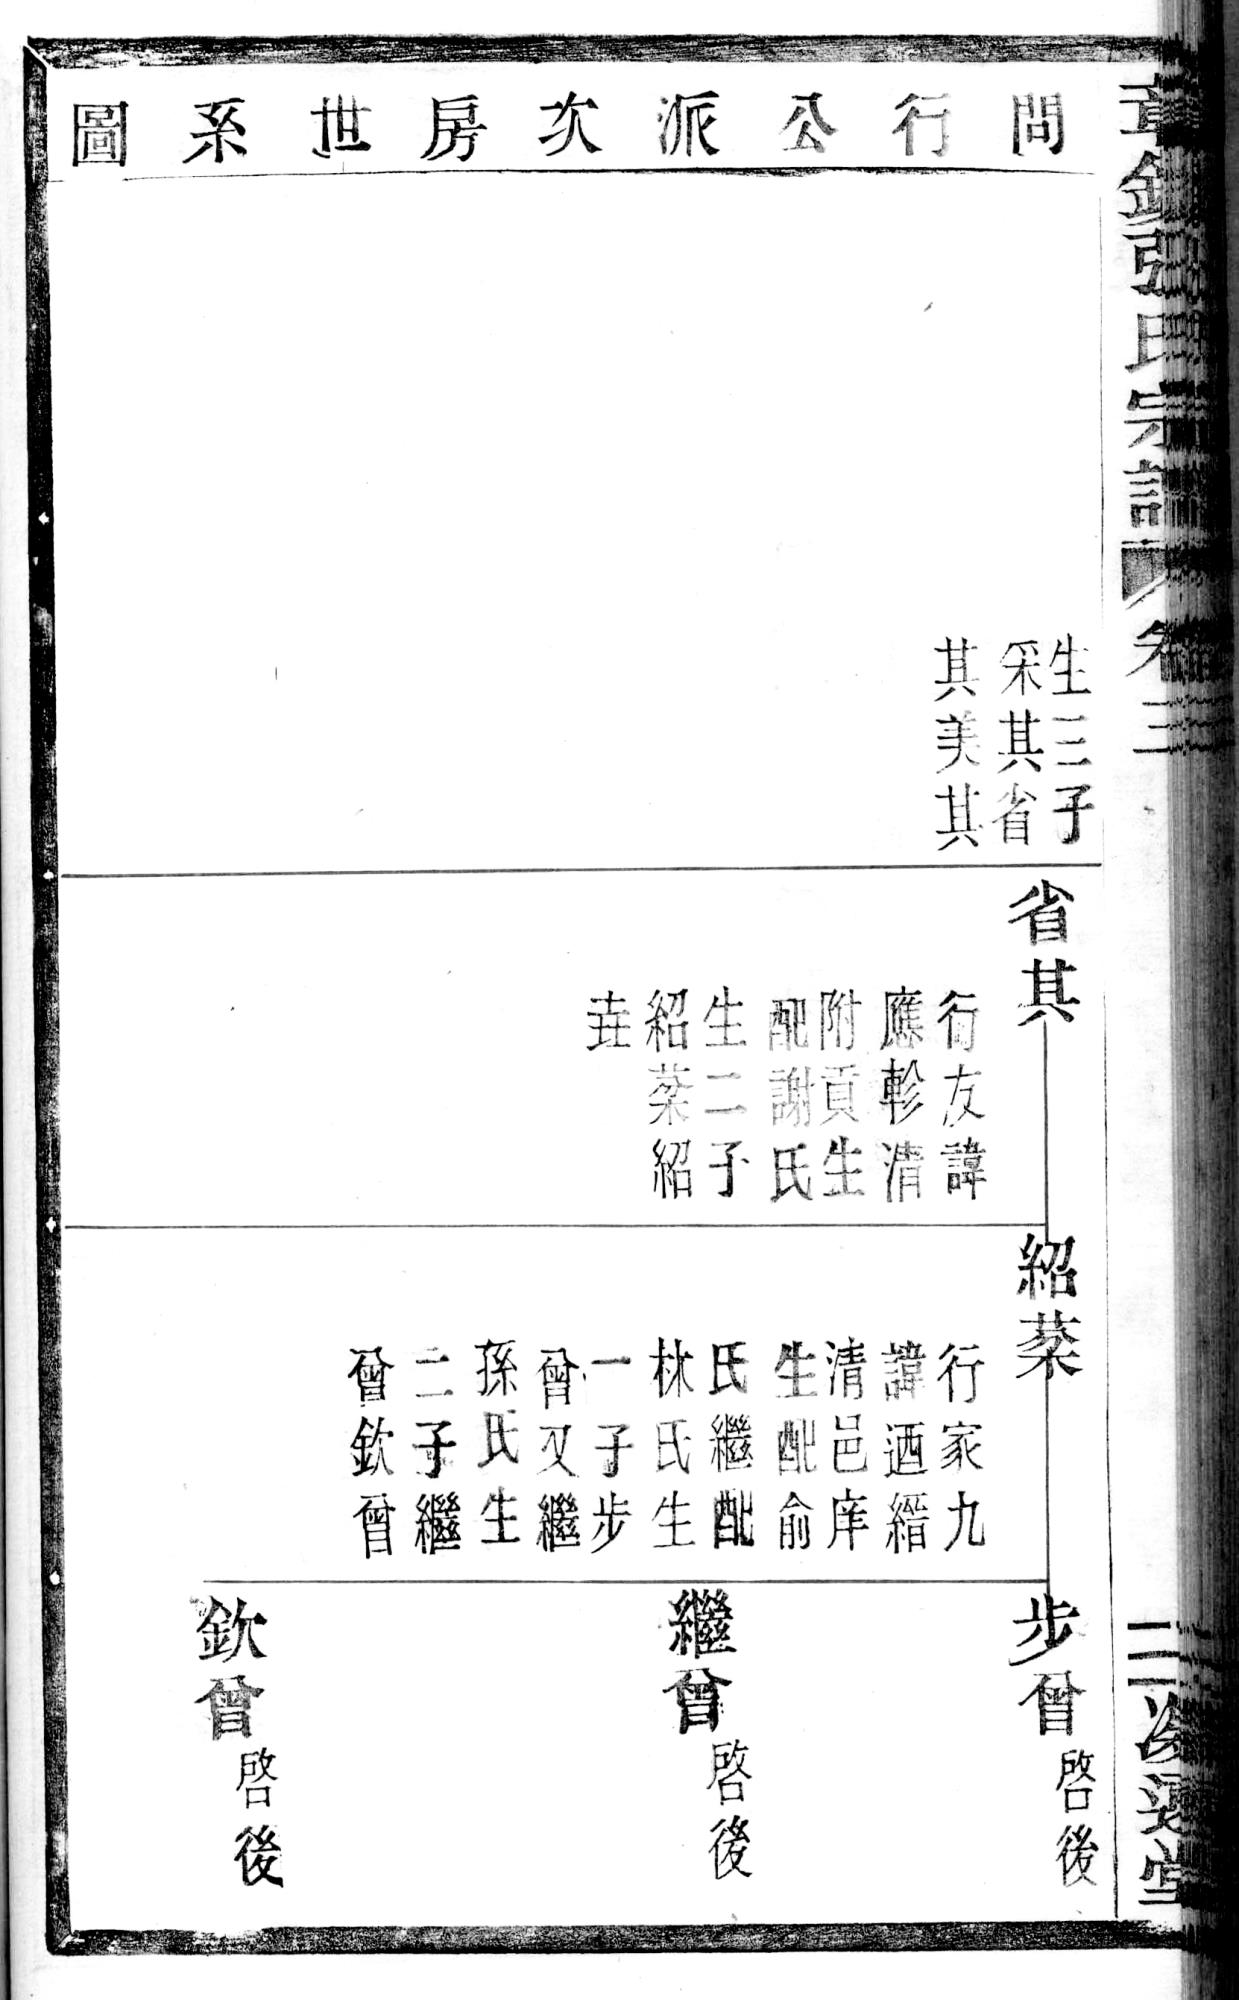 問行公派次房世系圖
生三子
采其省
其美其
省其
行友諱
應軫清
附貢生
配謝氏
生二子
紹棻紹
垚
紹棻
行家九
諱迺縉
清邑庠
生配俞
氏繼配
林氏生
一子步
曾又繼
孫氏生
二子繼
曾欽曾
步曾
啓後
繼曾
啓後
欽曾
啓後
張氏宗譜
卷三
二
堂